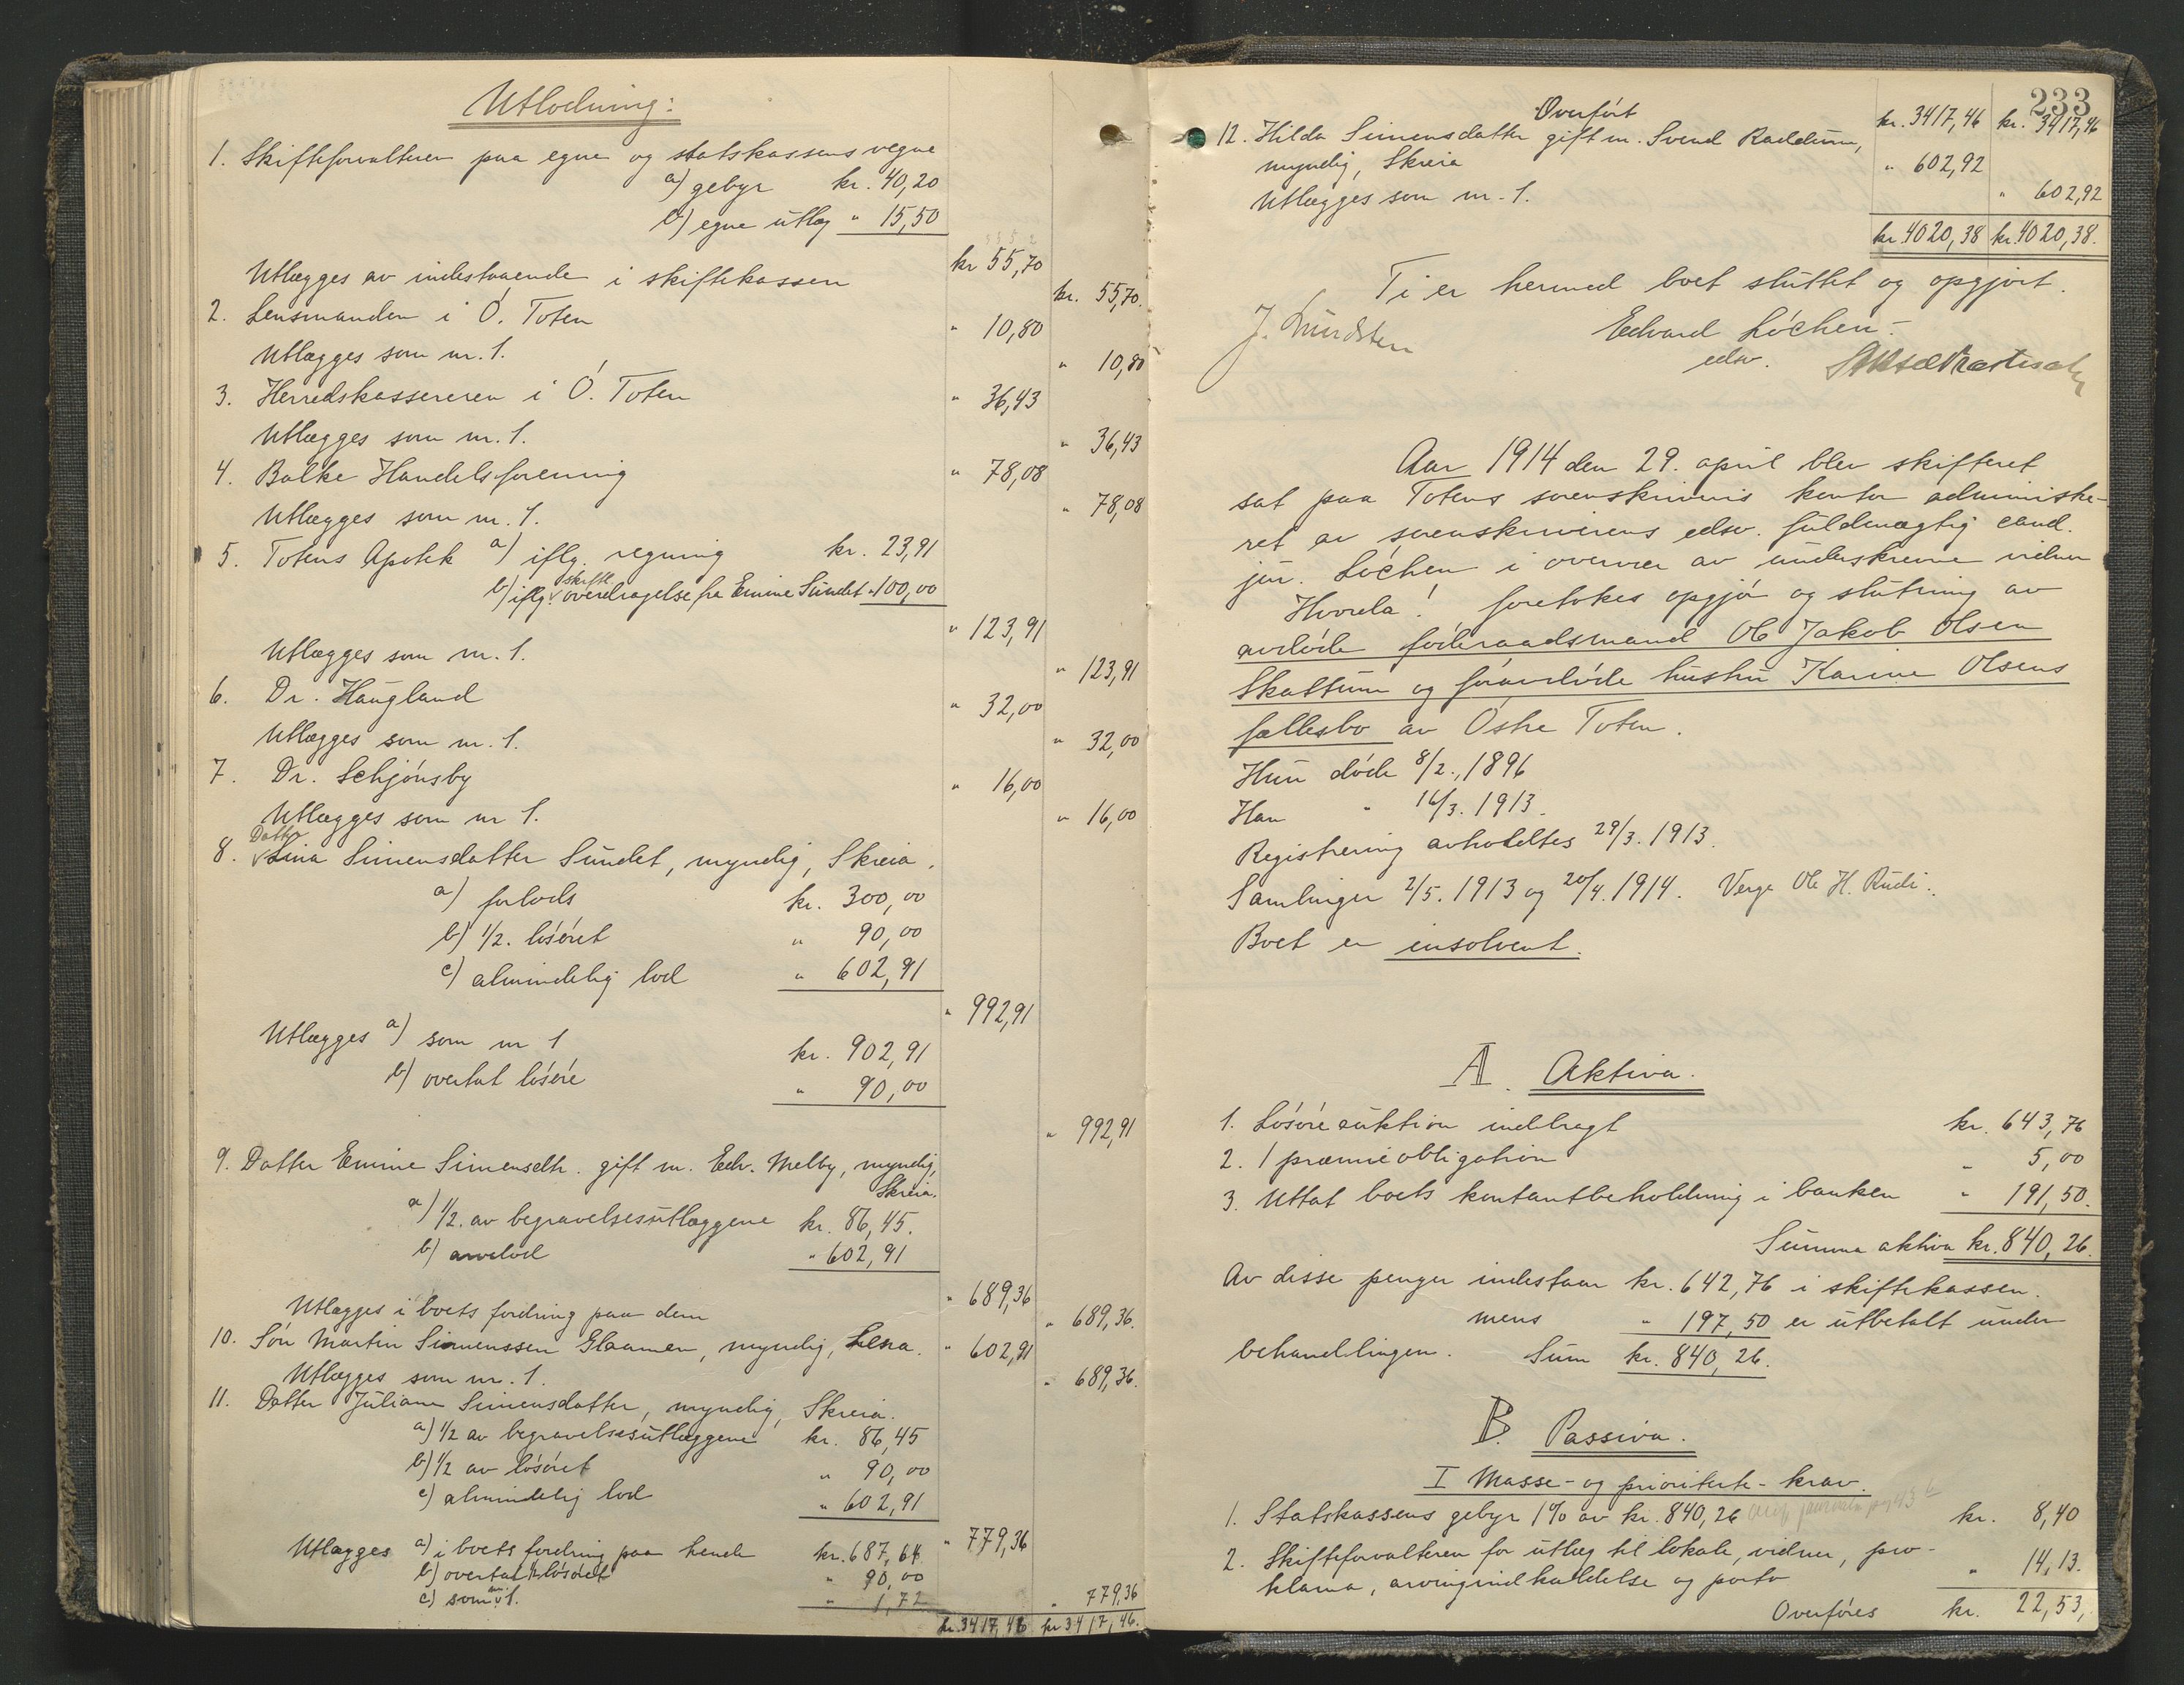 Utlodning:
1. Skifteforvalteren paa egne og statskassens vegne
a) gebyr kr. 40,20
b) egne utlæg " 15,50
kr 55,70
Utlægges av indestaaende i skiftekassen kr. 55,70.
2. Lensmanden i Ö. Toten " 10,80
Utlægges som nr. 1. " 10,80
3. Herredskassereren i Ö. Toten " 36,43
Utlægges som nr. 1. " 36,43
4. Balke Handelsforening " 78,08
Utlægges som nr. 1. " 78,08
5. Totens Apotek a) iflg. regning kr. 23,91
b) iflg. skifte overdragelse fra Emine Sundet " 100,00
" 123,91
Utlægges som nr. 1. " 123,91
6. Dr. Haugland " 32,00
Utlægges som nr. 1. " 32,00
7. Dr. Schjönsby " 16,00
Utlægges som nr 1. " 16,00
8. Datter Lina Simensdatter Sundet, myndig, Skreia.
a) forlods kr. 300,00
b) 1/2. lösöret " 90,00
c) almindelig lod " 602,91
" 992,91
Utlægges a) som nr 1 kr. 902,91
b) overtat lösöre " 90,00
" 992,91
9. Datter Emine Simensdtr. gift m. Edv. Melby, myndig,
Skreia.
a) 1/2. av begravelsesutlæggene kr. 86,45.
b) arvelod " 602,91
" 689,36
Utlægges i boets fordring paa dem " 689,36.
10. Sön Martin Simenssen Glaamen, myndig, Lena. " 602,91
Utlægges som nr. 1. " 689,36.
11. Datter Juliane Simensdatter, myndig, Skreia.
a) 1/2 av begravelsesutlæggene kr. 86,45
b) 1/2 av lösöret " 90,00
c) almindelig lod " 602,91
" 779,36
Utlægges a) i boets fordring paa hende kr. 687,64
b) overtat 1/2 lösöret " 90,00
c) som nr. 1. " 1,72 " 779,36
kr. 3417,46 kr 3417,46.
233
Overfört kr. 3417,46 kr. 3417,46
12. Hilda Simensdatter gift m. Svend Raddum,
myndig, Skreia " 602,92
Utlægges som nr. 1. " 602,92
kr. 4020,38 kr. 4020,38.
Ti er hermed boet sluttet og opgjort.
J. Lundsten Edvard Löchen.
edsv.
Aar 1914 den 29. april blev skifteret
sat paa Totens sorenskriveris kontor administre-
ret av sorenskriverens edsv. fuldmægtig cand.
jur. Löchen i overvær av underskrevne vidner
Hvorda! foretokes opgjör og slutning av
avdöde föderaadsmand Ole Jakob Olsen
Skattum og foravdöde hustru Karine Olsens
fællesbo av Östre Toten.
Hun döde 8/2., 1896
Han " 16/3. 1913.
Registrering avholdtes 29/3. 1913.
Samlinger 2/5. 1913 og 20/4. 1914. Verge Ole H. Rudi.
Boet er insolvent.
A. Aktiva.
1. Lösöreauktion indbragt kr. 643,76
2. 1 præmieobligation " 5,00
3. Uttat boets kontantbeholdning i banken " 191,50.
Summa aktiva kr. 840,26.
Av disse penger indestaar kr. 642,76 i skiftekassen.
mens " 197,50 er utbetalt under
behandlingen. Sum kr. 840,26.
B. Passiva.
I Masse- og prioriterte- krav.
1. Statskassens gebyr 1% av kr. 840,26 kr. 8,40
2. Skifteforvalteren for utlæg til lokale, vidner, pro-
klama, arvingindkaldelse og porto " 14,13.
Overföres kr. 22,53,